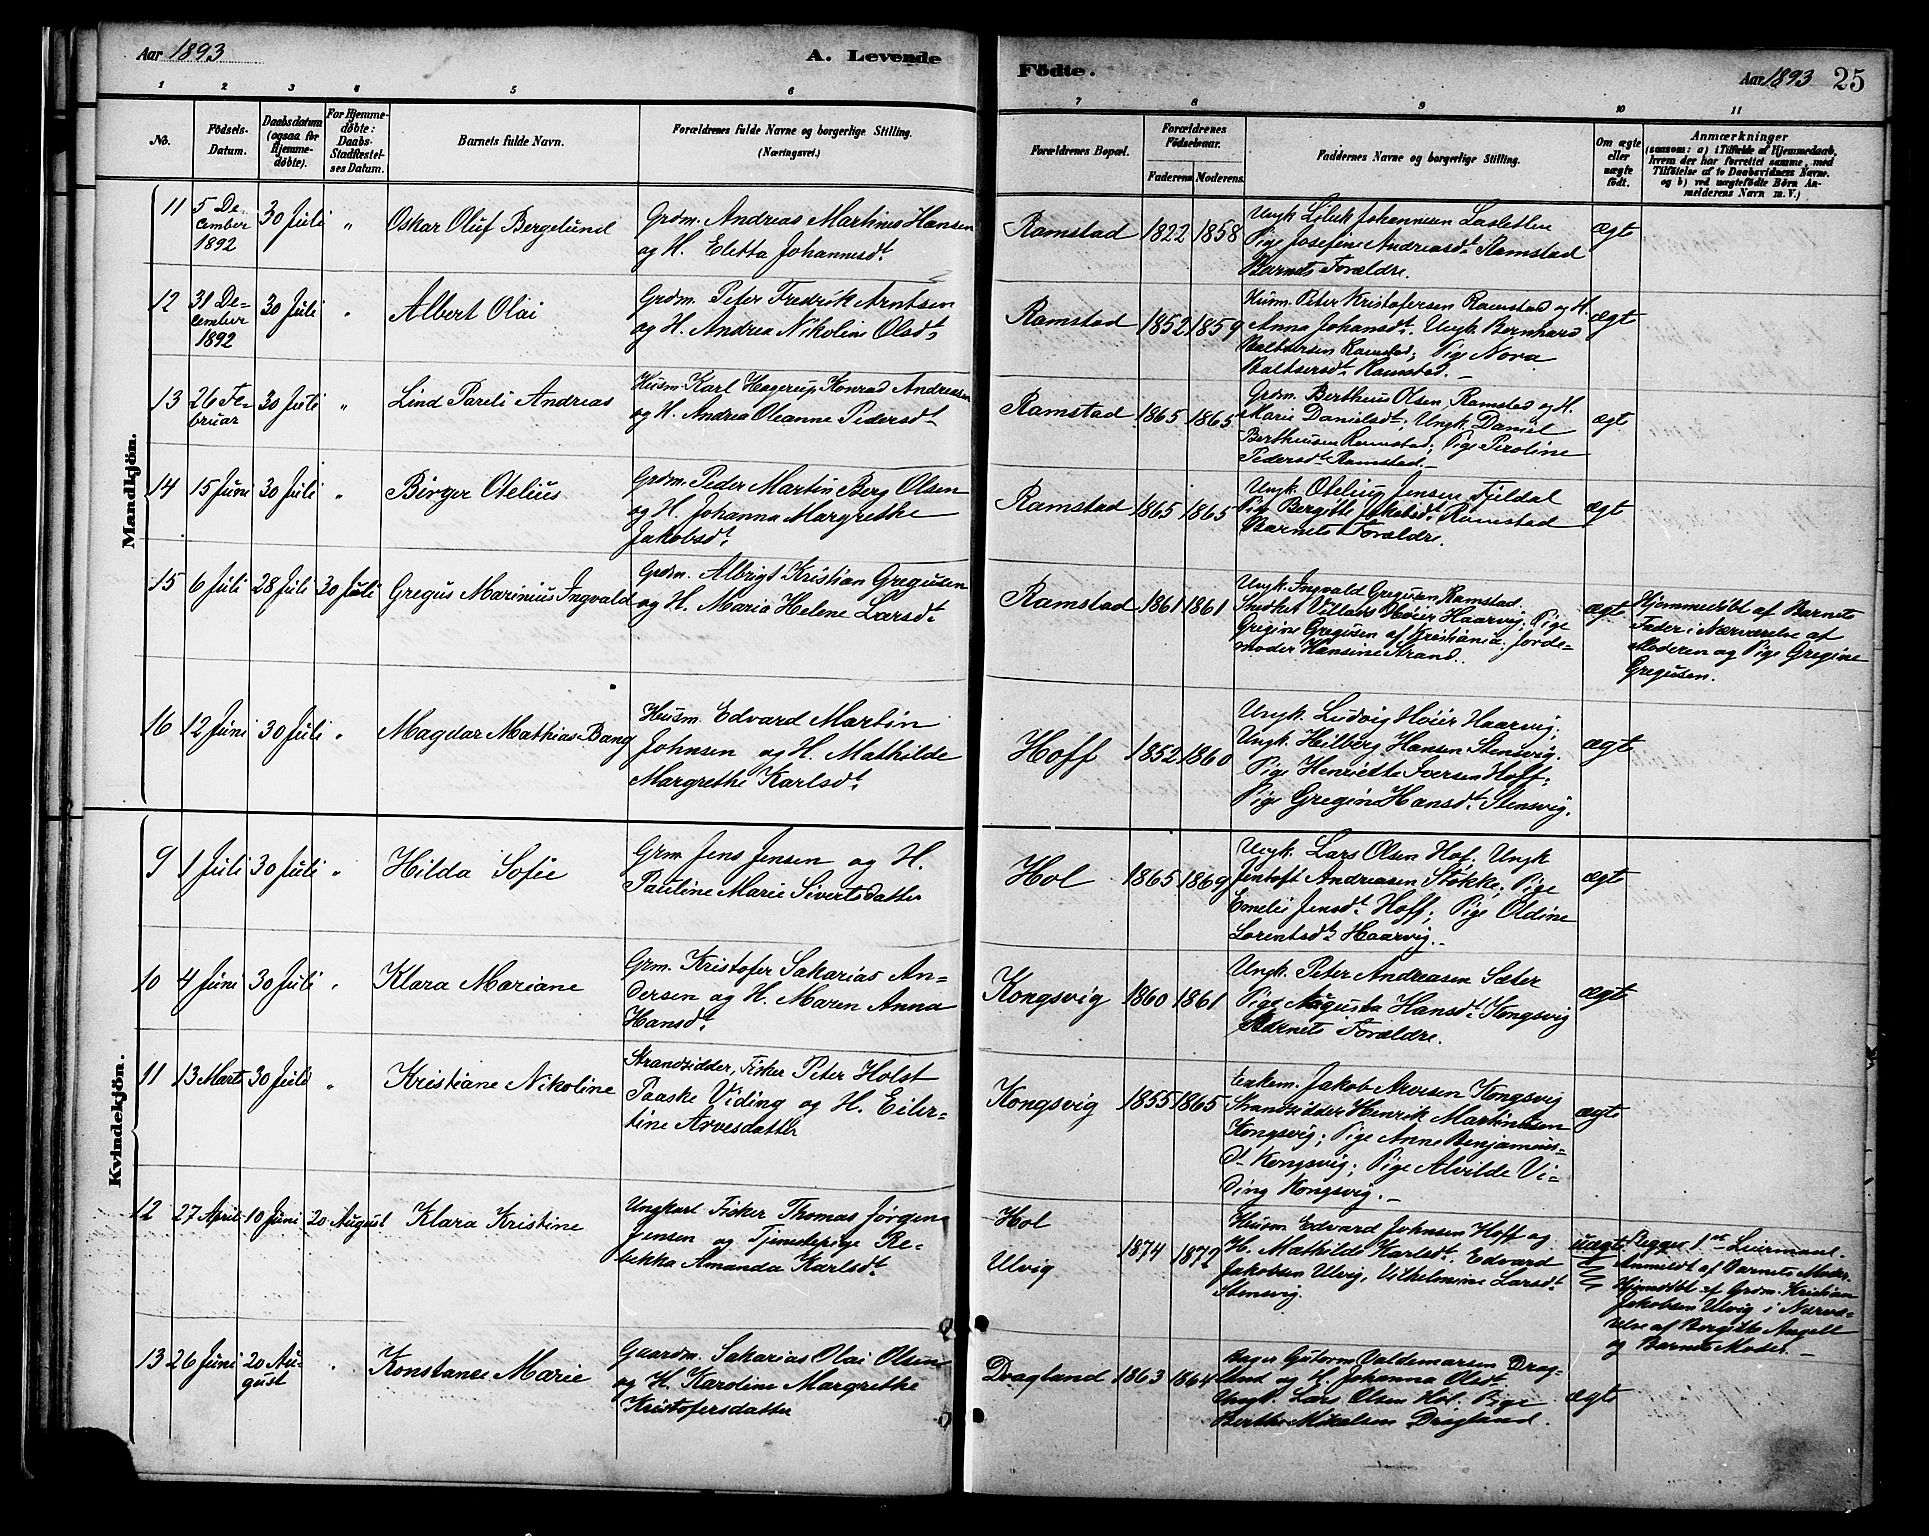 Aar 1893
A. Levende
Födte.
Aar 1893 25
1 2 3 4 5 6 7 8 9 10 11
No.
Födsels-
Datum.
Daabsdatum
(ogsaa for
Hjemme-
döbte).
For Hjemme-
döbte:
Daabs-
Stadfæstel-
ses Datum.
Barnets fulde Navn.
Forældrenes fulde Navne og borgerlige Stilling.
(Næringsvei.)
Forældrenes Bopæl.
Forældrenes
Födselsaar.
Faderens Moderens
Faddernes Navne og borgerlige Stilling.
Om ægte
eller
uægte
födt.
Anmærkninger
(saasom: a) i Tilfælde af Hjemmedaab,
hvem der har forrettet samme, med
Tilföielse af to Daabsvidners Navne.
og b) ved uægtefödte Börn An-
melderens Navn m. V.)
Mandkjön.
11
5 De-
cember
1892
30 Juli
"
Oskar Oluf Bergelund
Grdm. Andreas Martinus Hansen
og H. Eletta Johannesdt
Ramstad
1822 1858
Pige Josefine Andreasdt Ramstad
Barnets Forældre.
ægt
12
31 De-
cember
1892
30 Juli
"
Albert Olai
Grdm. Peter Fredrik Arntsen
og H. Andrea Nikoline Olsdt
Ramstad
1852 1859
Husm. Peter Kristofersen Ramstad og H.
Anna Johansdt. Ungk. Bernhard
Baltsersen Ramstad; Pige Nova
Baltsersdt Ramstad.
ægt
13
26 Fe-
bruar
30 Juli
"
Lind Pareli Andreas
Husm. Karl Hagerup Konrad Andreasen
og H. Andrea Oleanne Pedersdt
Ramstad
1865 1865
Grdm. Bertheus Olsen Ramstad og H.
Marie Danielsdt; Ungk. Daniel
Bertheusen Ramstad; Pige Peroline
Pedersdt Ramstad.
ægt
14
15 Juni
30 Juli
"
Birger Otelius
Grdm. Peder Martin Berg Olsen
og H. Johanna Margrethe
Jakobsdt
Ramstad
1865 1865
Ungk. Otelius Jensen Fjeldal
Pige Bergitte Jakobsdt Ramstad
Barnets Forældre.
ægt
15
6 Juli
28 Juli
30 Juli
Gregus Marinius Ingvald
Grdm. Albrigt Kristian Gregusen
og H. Maria Helene Larsdt
Ramstad
1861 1861
Ungk. Ingvald Gregusen Ramstad.
Høier Haarvig; Pige
Gregine Gregusen af Kristiania. Jorde-
moder Hansine Strand.
ægt
Hjemmedöbt af Barnets
Fader i Nærværelse af
Moderen og Pige Gregine
Gregusen.
16
12 Juni
30 Juli
"
Magdar Mathias Bang
Husm. Edvard Martin
Johnsen og H. Mathilde
Margrethe Karlsdt
Hoff
1852 1860
Ungk. Ludvig Høier Haarvig;
Ungk. Hilberg Hansen Stensvig.
Pige Henriette Iversen Hoff;
Pige Gregine Hansdt Stensvig.
ægt
Kvindekjön.
9
1 Juli
30 Juli
"
Hilda Sofie
Grm. Jens Jensen og H.
Pauline Marie Sivertsdatter
Hol
1865 1869
Ungk. Lars Olsen Hof. Ungk
Jentoft Andreasen Stokke; Pige
Emelie Jensdt Hoff; Pige Oldine
Lorentsdt Haarvig.
ægt
10
4 Juni
30 Juli
"
Klara Mariane
Grm. Kristofer Sakarias An-
dersen og H. Maren Anna
Hansdt
Kongsvig
1860 1861
Ungk. Peter Andreasen Sæter
Pige Augusta Hansdt Kongsvig
Barnets Forældre.
ægt
11
13 Marts
30 Juli
"
Kristiane Nikoline
Strandsidder, Fisker Peter Holst
Paaske Viding og H. Eiler-
tine Arvesdatter
Kongsvig
1855 1865
Jakob Arvesen Kongsvig
Strandsidder Henrik Martinusen
Kongsvig; Pige Anne Benjamins-
dt Kongsvig; Pige Alvilde Vi-
ding Kongsvig.
ægt
12
27 April
10 Juni
20 August
Klara Kristine
Ungkarl Fisker Thomas Jørgen
Jensen og Tjenestepige Re-
bekka Amanda Karlsdt
Hol
Ulvig
1874 1872
Husm Edvard Johnsen Hoff og
H. Mathilde Karlsdt. Edvard
Jakobsen Ulvig, Vilhelmine Larsdt
Stensvig.
uægt
Begges 1ste Leiermaal.
Anmeldt af Barnets Moder.
Hjemdöbt af Grdm. Kristian
Jakobsen Ulvig i Nærvæ-
relse af Bergitte Angell
og Barnets Moder.
13
26 Juni
20 Au-
gust
"
Konstanse Marie
Gaardm. Sakarias Olai Olsen
og H. Karoline Margrethe
Kristofersdatter
Dragland
1863 1864
Guttorm Valdemarsen Drag-
land og H. Johanna Olsdt
Ungk. Lars Olsen Hol. Pige
Berthe Mikalsen Dragland.
ægt